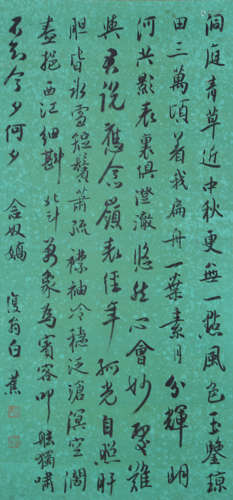 洞庭青草近中秋更無一點風色玉鑒瓊
田三萬頃着我扁舟一葉素月分輝明
河共影表裏俱澄澈悠然心會妙處難
與君說應念嶺表經年孤光自照肝
膽皆冰雪短鬢蕭疏襟袖冷穩泛滄溟空闊
盡挹西江細斟北斗萬象為賓客叩舷獨嘯
不知今夕何夕 念奴嬌 復翁白蕉